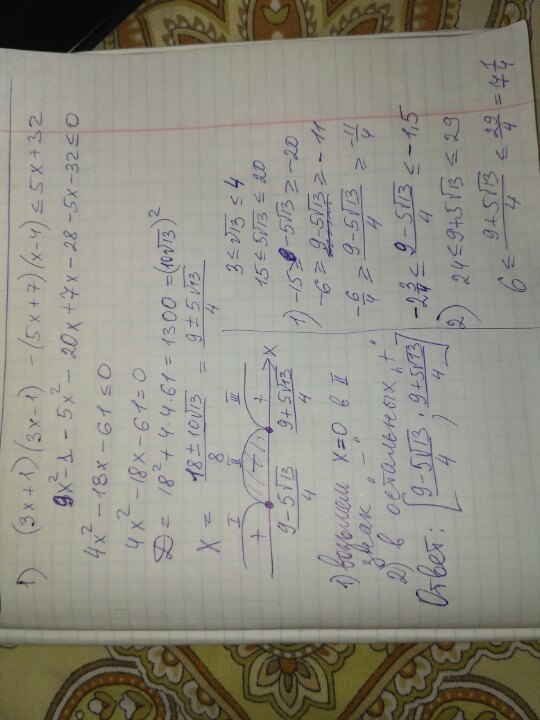 1) (3x+1)(3x-1) - (5x+7)(x-4) ≤ 5x+32
9x² - 1 - 5x² - 20x + 7x - 28 - 5x - 32 ≤ 0
4x² - 18x - 61 ≤ 0
4x² - 18x - 61 = 0
D = 18² + 4·4·61 = 1300 = (10√13)²
x = (18 ± 10√13)/8 = (9 ± 5√13)/4
I II III
+ - + x
(9-5√13)/4 (9+5√13)/4
1) возьмем x=0 в II
знак "-"
2) в остальных "+"
Ответ: [(9-5√13)/4 ; (9+5√13)/4]
3 ≤ √13 ≤ 4
15 ≤ 5√13 ≤ 20
1) -15 ≥ -5√13 ≥ -20
-6 ≥ 9-5√13 ≥ -11
-6/4 ≥ (9-5√13)/4 ≥ -11/4
-2 3/4 ≤ (9-5√13)/4 ≤ -1,5
2) 24 ≤ 9+5√13 ≤ 29
6 ≤ (9+5√13)/4 ≤ 29/4 = 7 1/4